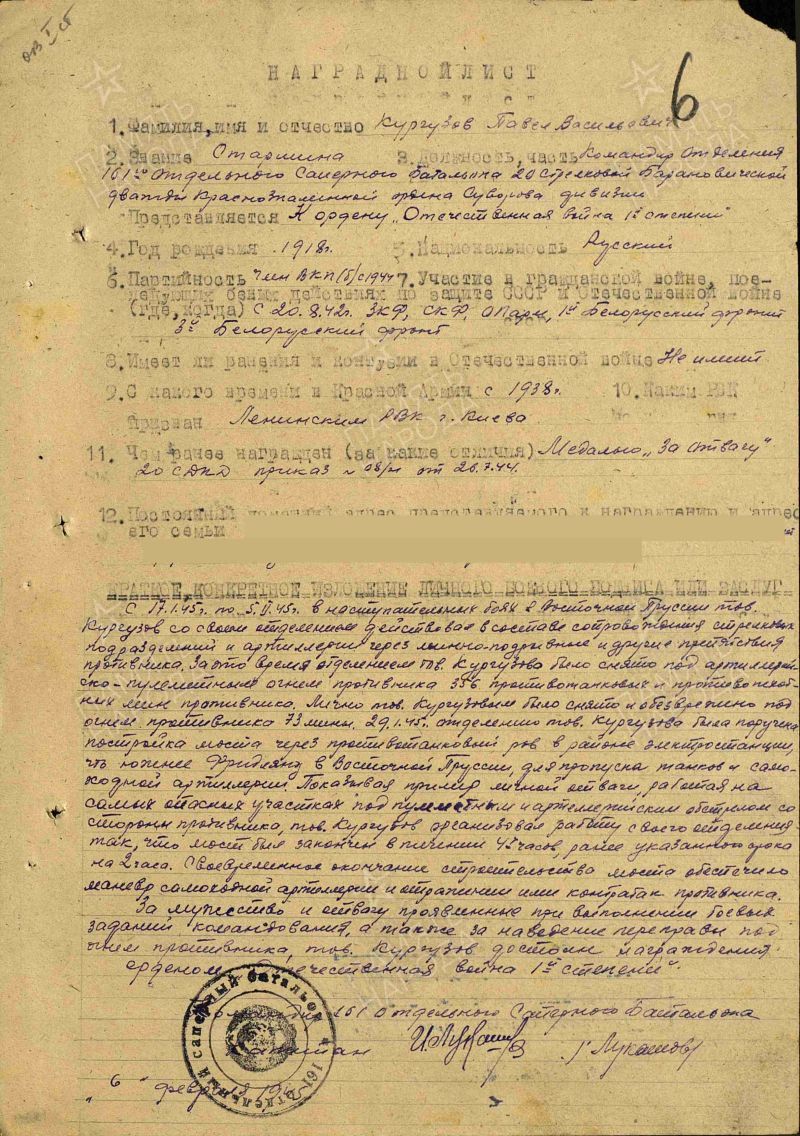 6
НАГРАДНОЙ ЛИСТ
1. Фамилия, имя и отчество Кургузов Павел Васильевич
2. Звание Старшина 3. Должность, часть Командир отделения
161го отдельного Саперного батальона 20 Стрелковой Барановической
дважды Краснознаменной ордена Суворова дивизии
Представляется К ордену „Отечественная война 1й степени"
4. Год рождения 1918г. 5. Национальность Русский
6. Партийность член ВКП(б) с 1944 7. Участие в гражданской войне, после-
дующих боевых действиях по защите СССР и Отечественной войне
(где, когда) С 20.8.42г. ЗКФ, СКФ, 1й Белорусский фронт
3й Белорусский фронт
8. Имеет ли ранения и контузии в Отечественной войне Не имеет
9. С какого времени в Красной Армии с 1938г. 10. Каким РВК
призван Ленинским РВК г. Киева
11. Чем ранее награжден (за какие отличия) Медалью „За отвагу"
20 СДКД приказ № 08/н от 26.7.44.
12. Постоянный домашний адрес представляемого к награждению и адрес
его семьи
КРАТКОЕ, КОНКРЕТНОЕ ИЗЛОЖЕНИЕ ЛИЧНОГО БОЕВОГО ПОДВИГА ИЛИ ЗАСЛУГ
С 17.1.45г. по 5.II.45г. в наступательных боях в Восточной Пруссии тов.
Кургузов со своим отделением действовал в составе сопровождения стрелковых
подразделений и артиллерии через минно-подрывные и другие препятствия
противника. За это время отделением тов. Кургузова было снято под артиллерий-
ско-пулеметным огнем противника 356 противотанковых и противопехот-
ных мин противника. Лично тов. Кургузовым было снято и обезврежено под
огнем противника 73 мины. 29.1.45г. отделению тов. Кургузова была поручена
постройка моста через противотанковый ров в районе электростанции,
что южнее Фридлянд в Восточной Пруссии, для пропуска танков и само-
ходной артиллерии. Показывая пример личной отваги, работая на
самых опасных участках под пулеметным и артиллерийским обстрелом со
стороны противника, тов. Кургузов организовал работу своего отделения
так, что мост был закончен в течении 4х часов, ранее указанного срока
на 2 часа. Своевременное окончание строительства моста обеспечило
маневр самоходной артиллерии и отражении ими контратак противника.
За мужество и отвагу проявленные при выполнении боевых
заданий командования, а также за наведение переправы под
огнем противника, тов. Кургузов достоин награждения
орденом „Отечественная война 1й степени".
Командир 161 Отдельного Саперного Батальона
Капитан /Лукашов/
„6" февраля 194
161 Отдельный саперный батальон